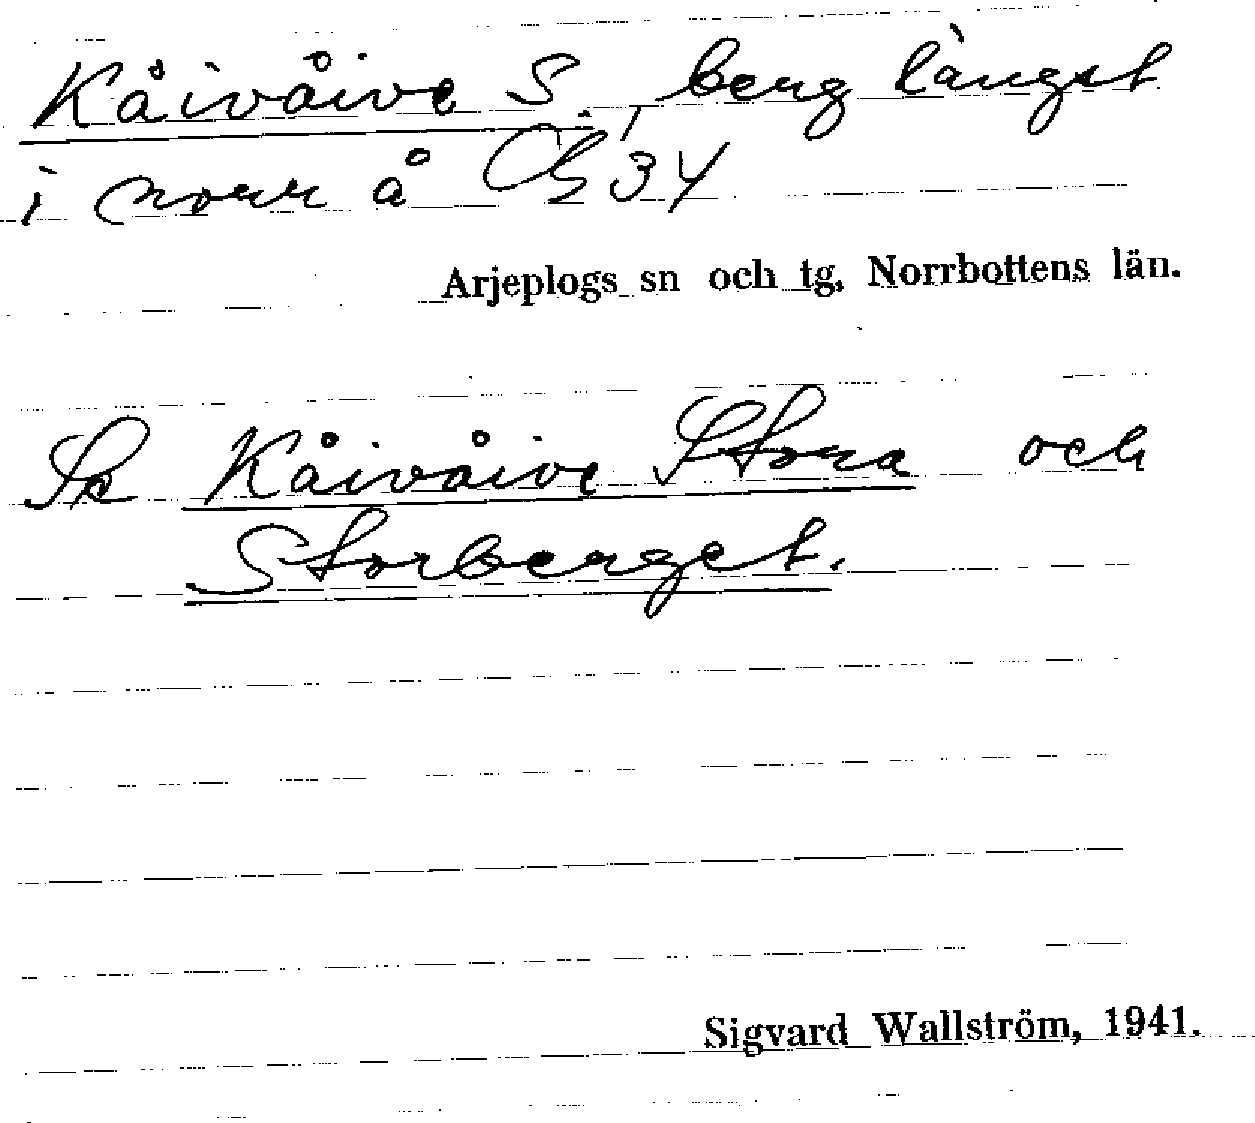 Kåivåive S., berg längst
i norr å Öb 34
Arjeplogs sn och tg, Norrbottens län.
Se Kåivåive Stora och
Storberget.
Sigvard Wallström, 1941.